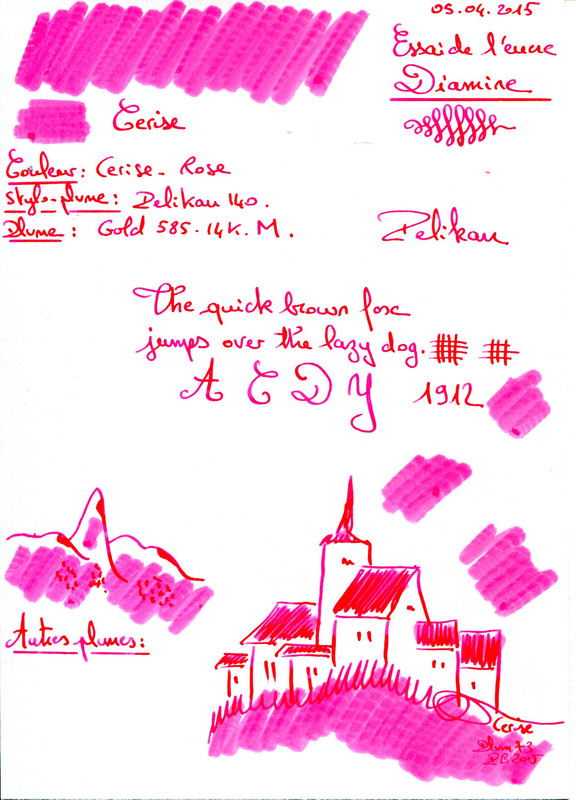 05.04.2015
Essai de l'encre
Diamine
Cerise
Couleur: Cerise - Rose
Stylo-plume: Pelikan 140.
Plume: Gold 585-14K. M.
Pelikan
The quick brown fox
jumps over the lazy dog.
A C D Y 1912
Autres plumes:
Cerise
2015